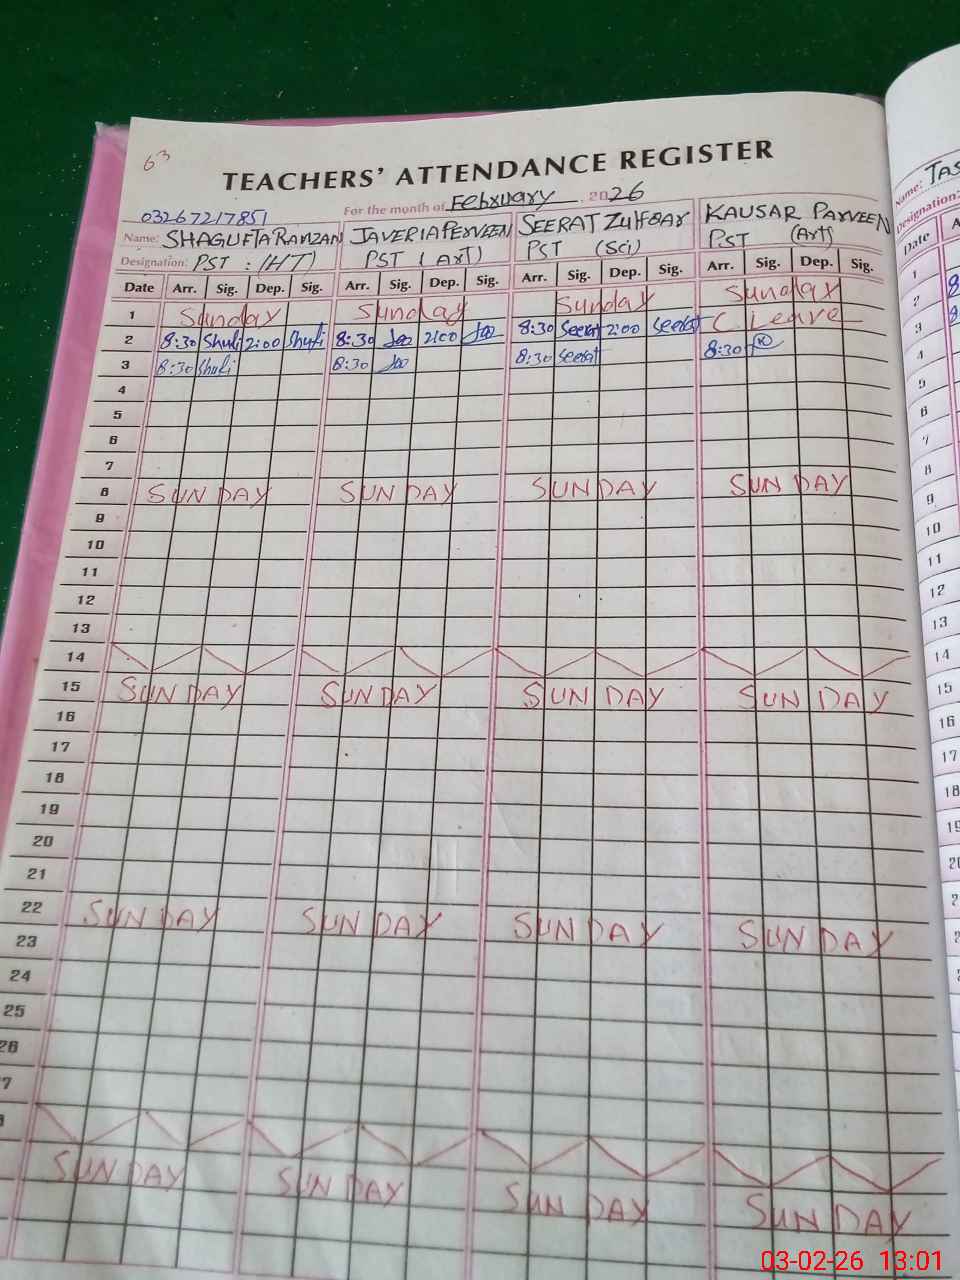 63
TEACHERS' ATTENDANCE REGISTER
For the month of February 2026
03267217851
Name: SHAGUFTA RAMZAN JAVERIA PERVEEN SEERAT ZULFQAR KAUSAR PARVEEN
Designation: PST : (HT) PST (Art) PST (Sci) PST (Art)
Date Arr. Sig. Dep. Sig. Arr. Sig. Dep. Sig. Arr. Sig. Dep. Sig. Arr. Sig. Dep. Sig.
1 Sunday Sunday Sunday Sunday
2 8:30 2:00 8:30 2:00 8:30 Seerat 2:00 Seerat C Leave
3 8:30 8:30 8:30 Seerat 8:30
4
5
6
7
8 SUNDAY SUNDAY SUNDAY SUNDAY
9
10
11
12
13
14
15 SUNDAY SUNDAY SUNDAY SUNDAY
16
17
18
19
20
21
22 SUNDAY SUNDAY SUNDAY SUNDAY
23
24
25
26
7
SUNDAY SUNDAY SUNDAY SUNDAY
Name: TAS
Designation:
Date A
1
2 8
3 8
4
5
6
7
8
9
10
11
12
13
14
15
16
17
18
19
20
03-02-26 13:01